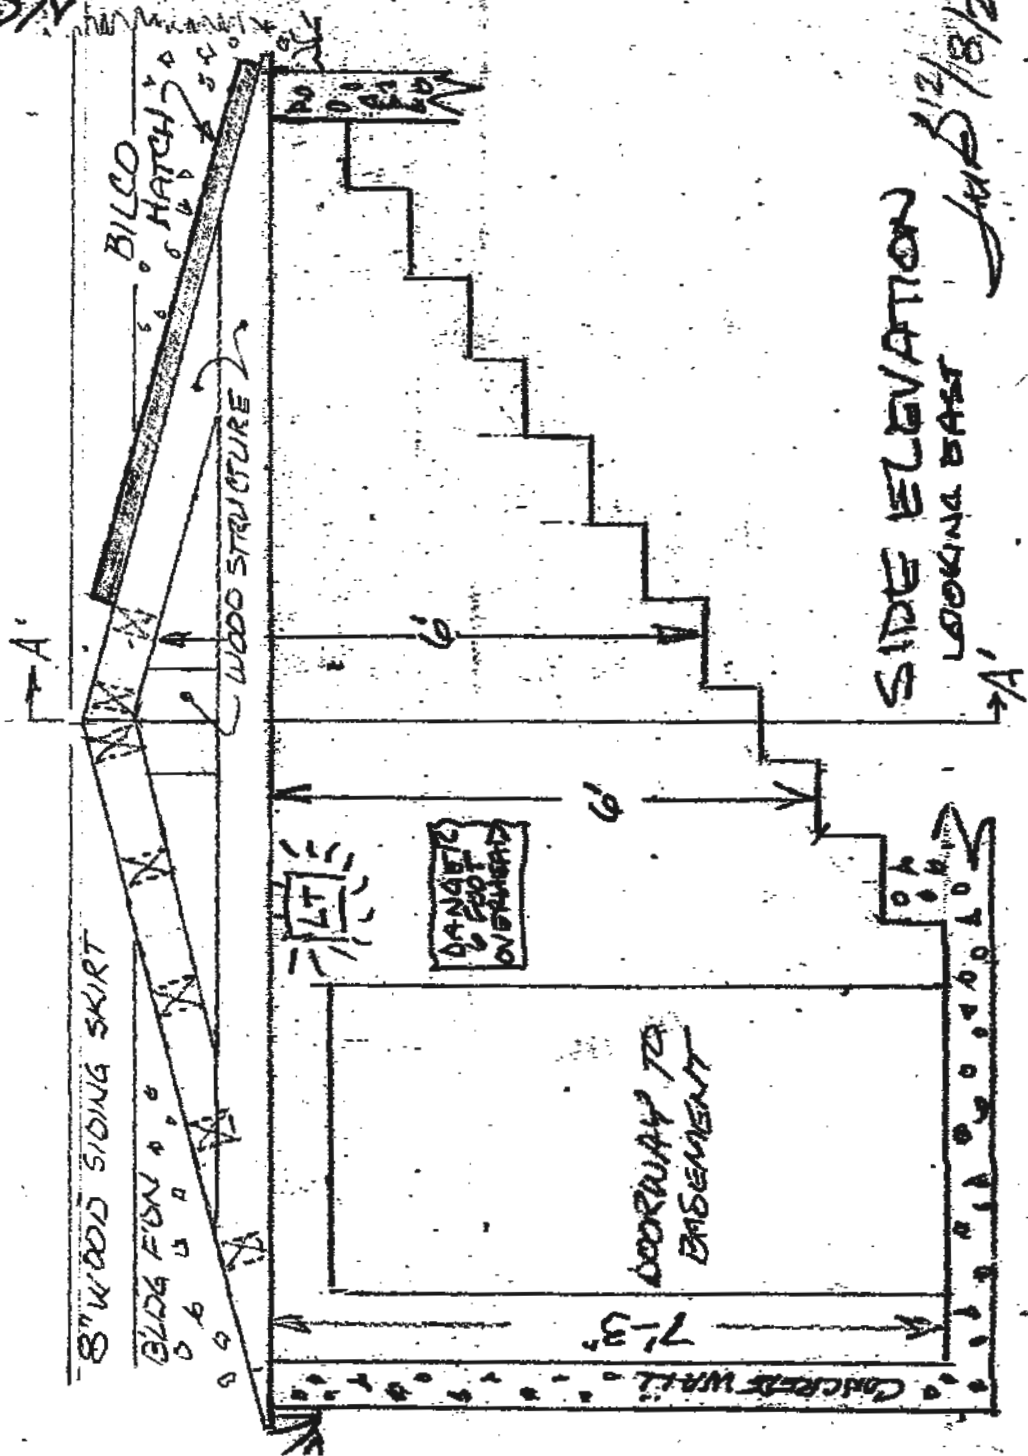 8" WOOD SIDING SKIRT
BLDG FDN
BILCO
HATCH
WOOD STRUCTURE
A'
6'
6'
LT
DANGER
6 FOOT
OVERHEAD
DOORWAY TO
BASEMENT
7'-3"
CONCRETE WALL
SIDE ELEVATION
LOOKING EAST
A'